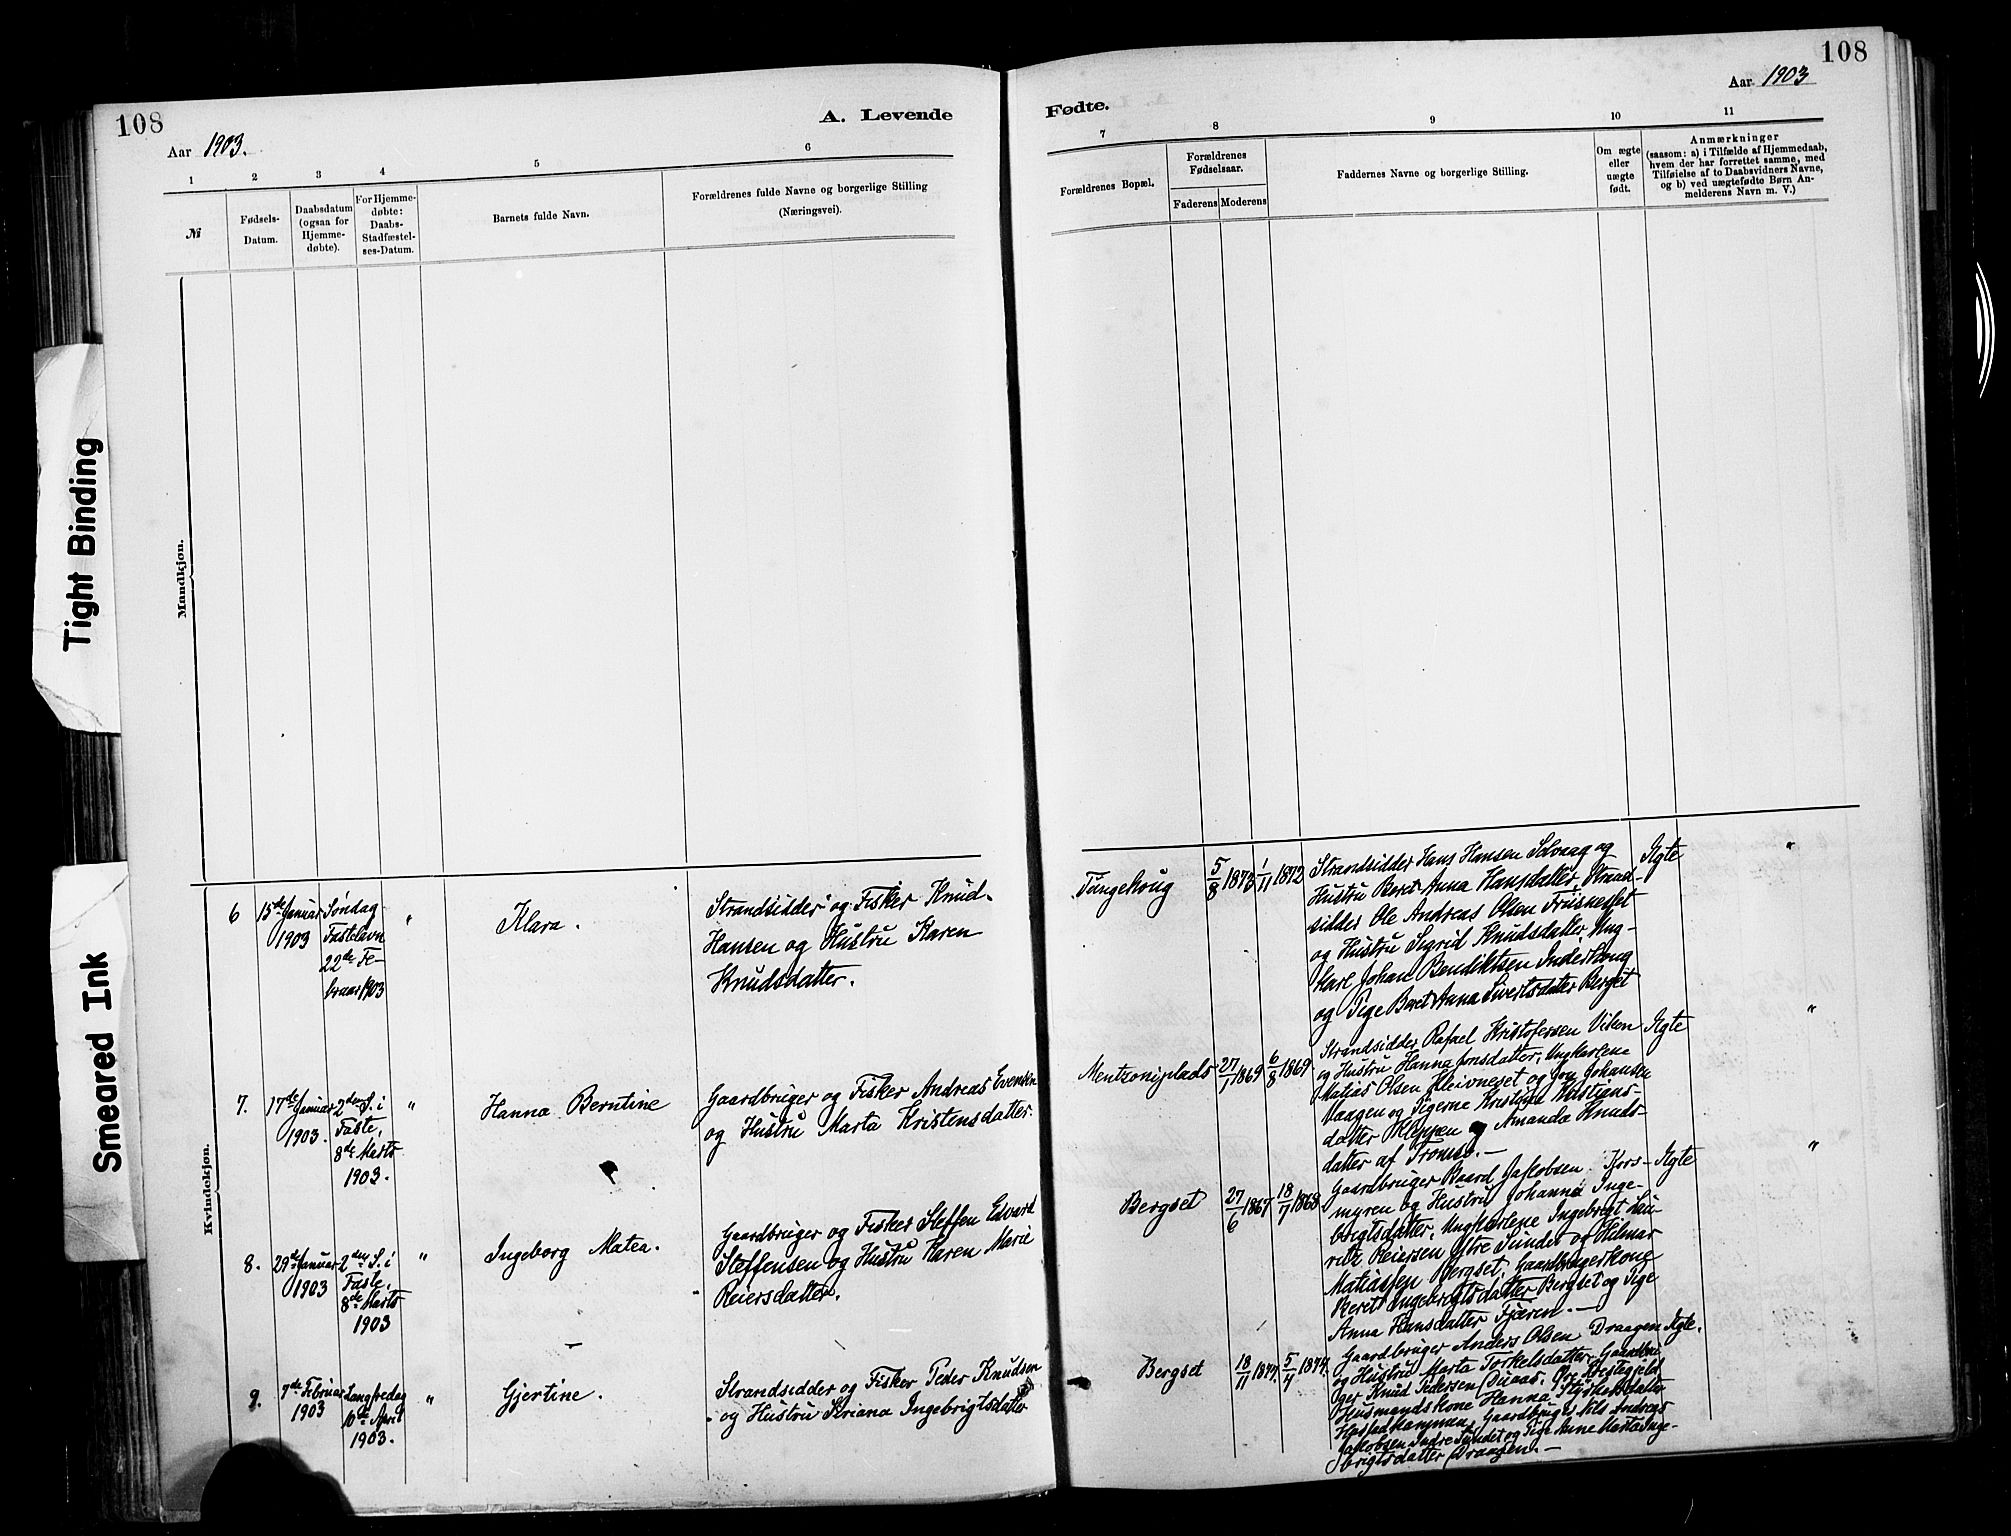 108
A. Levende
Aar 1903.
1
2
3
4
5
6
№
Fødsels-
Datum.
Daabsdatum
(ogsaa for
Hjemme-
døbte).
For Hjemme-
døbte:
Daabs-
Stadfæstel-
ses-Datum.
Barnets fulde Navn.
Forældrenes fulde Navne og borgerlige Stilling
(Næringsvei).
Mandkjøn.
Kvindekjøn.
6
15de Januar
1903
Søndag
Fastelavn
22de Fe-
bruar 1903
"
Klara.
Strandsidder og Fisker Knud
Hansen og Hustru Karen
Knudsdatter.
7.
17de Januar
1903.
2den S. i
Faste,
8de Marts
1903.
"
Hanna Berntine
Gaardbruger og Fisker Andreas Evensen
og Hustru Marta Kristensdatter.
8.
29de Januar
1903
2den S. i
Faste,
8de Marts
1903
"
Ingeborg Matea.
Gaardbruger og Fisker Steffen Edvard
Steffensen og Hustru Karen Marie
Reiersdatter.
9.
7de Februar
1903
Langfredag
10de April
1903.
"
Gjertine.
Strandsidder og Fisker Peder Knudsen
og Hustru Seriana Ingebrigtsdatter
108
Aar 1903
Fødte.
7
8
9
10
11
Forældrenes Bopæl.
Forældrenes
Fødselsaar.
Faderens
Moderens
Faddernes Navne og borgerlige Stilling.
Om ægte
eller
uægte
født.
Anmærkninger
(saasom: a) i Tilfælde af Hjemmedaab,
hvem der har forrettet samme, med
Tilføielse af to Daabsvidners Navne,
og b) ved uægtefødte Børn An-
melderens Navn m. V.)
Tungehoug
5/8 1873
1/11 1872
Strandsidder Hans Hansen Solvaag og
Hustru Beret Anna Hansdatter, Strand-
sidder Ole Andreas Olsen Frusneset
og Hustru Sigrid Knudsdatter, Ung-
karl Johan Bendiktsen Inderhoug
og Pige Beret Anna Sivertsdatter Berget
Ægte
"
Mentzoniplads
27/1 1869
6/8 1869
Strandsidder Rafael Kristofersen Viken
og Hustru Hanna Jonsdatter, Ungkarlene
Matias Olsen Kleivneset og Jon Johansen
Vaagen og Pigerne Kristine Kristians-
datter Kleppen og Amanda Knuds-
datter af Tromsø.—
Ægte
"
Bergset
27/6 1867
18/7 1868
Gaardbruger Baard Jakobsen Kors-
myren og Hustru Johanna Inge-
brigtsdatter, Ungkarlene Ingebrigt Lau-
ritz Reiersen Ytre Sundet og Helmer
Matiassen Bergset, Gaardbrugerkone
Beret Ingebrigtsdatter Bergset og Pige
Anna Hansdatter Fjæren.—
Ægte
"
Bergset
18/11 1874
5/7 1874.
Gaardbruger Anders Olsen Draagen
og Hustru Marta Torkelsdatter, Gaardbru-
ger Knud Pedersen Duaas, Øre Prestegjeld
Husmandskone Hanna Styrkarsdatter
Hestadkammen, Gaardbruger Nils Andreas
Jakobsen Indre Sundet og Pige Anne Marta Inge-
brigtsdatter Draagen.—
Ægte.
Tight Binding
Smeared Ink